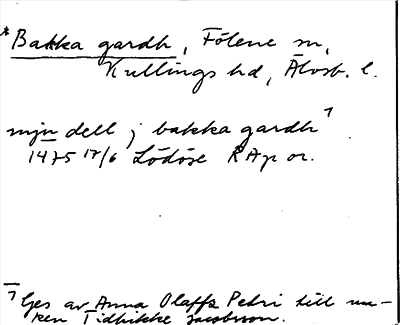 *Bakka gardh, Fölene sn,
Kullings hd, Älvsb. l.
mijn dell j bakka gardh ⁊
1475 17/6 Lödöse RAp or.
⁊ Ges av Anna Olaffs Petri till mu-
ken Tidhikke Jacobsson.